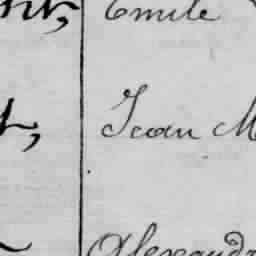 Emile
Jean M
Alexandr